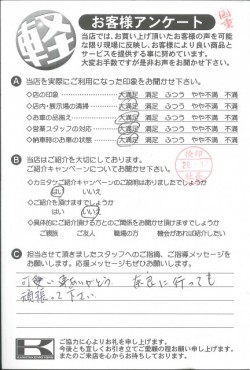 軽
お客様アンケート
当店では、お買い上げ頂いたお客様の声を可能
な限り現場に反映し、お客様により良い商品と
サービスを提供する事に努めています。
大変お手数ですが是非お声をお聞かせ下さい。
A 当店を実際にご利用になった印象をお聞かせ下さい。
◇店の印象 大満足 満足 ふつう やや不満 不満
◇店内・展示場の清掃 大満足 満足 ふつう やや不満 不満
◇お車の品揃え 大満足 満足 ふつう やや不満 不満
◇営業スタッフの対応 大満足 満足 ふつう やや不満 不満
◇納車時のお車の状態 大満足 満足 ふつう やや不満 不満
B 当店はご紹介を大切にしております。
ご紹介キャンペーンについてお聞かせ下さい。
◇カミタケご紹介キャンペーンのご説明はありましたでしょうか
はい いいえ
◇ご紹介を頂けますでしょうか
はい いいえ
◇具体的にご紹介頂ける方とのご関係をお聞かせ頂けますでしょうか
ご親族 ご友人 職場の方 機会があれば紹介したい
C 担当させて頂きましたスタッフへのご指摘、ご指導メッセージを
お願いします。応援メッセージもぜひお願い致します。
奈良に行っても
頑張って下さい
K
ご協力に心よりお礼を申し上げます。
今後とも宜しくお引き立てご愛顧の程お願い申し上げます。
またのご来店を心からお待ちしております。